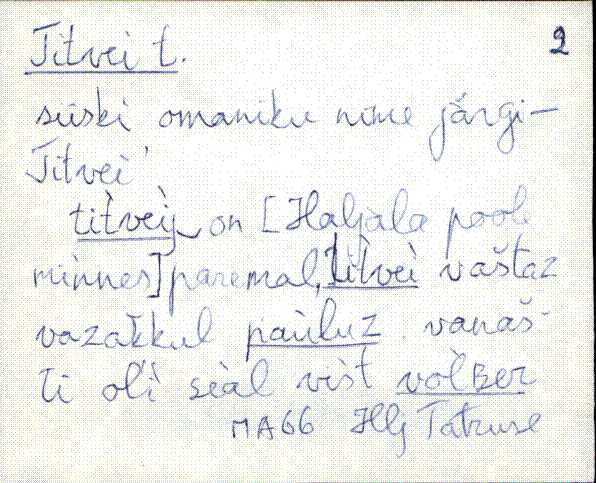 Titvei t. 2
siiski omaniku nime järgi –
Titvei'
titvei̬ on [Haljala pool
minnes] paremal, titvei vaštaz
vazakkul pàuluz. vanaš-
ti oĺi seàl vist vòlBer
MA66 Hlj Tatruse